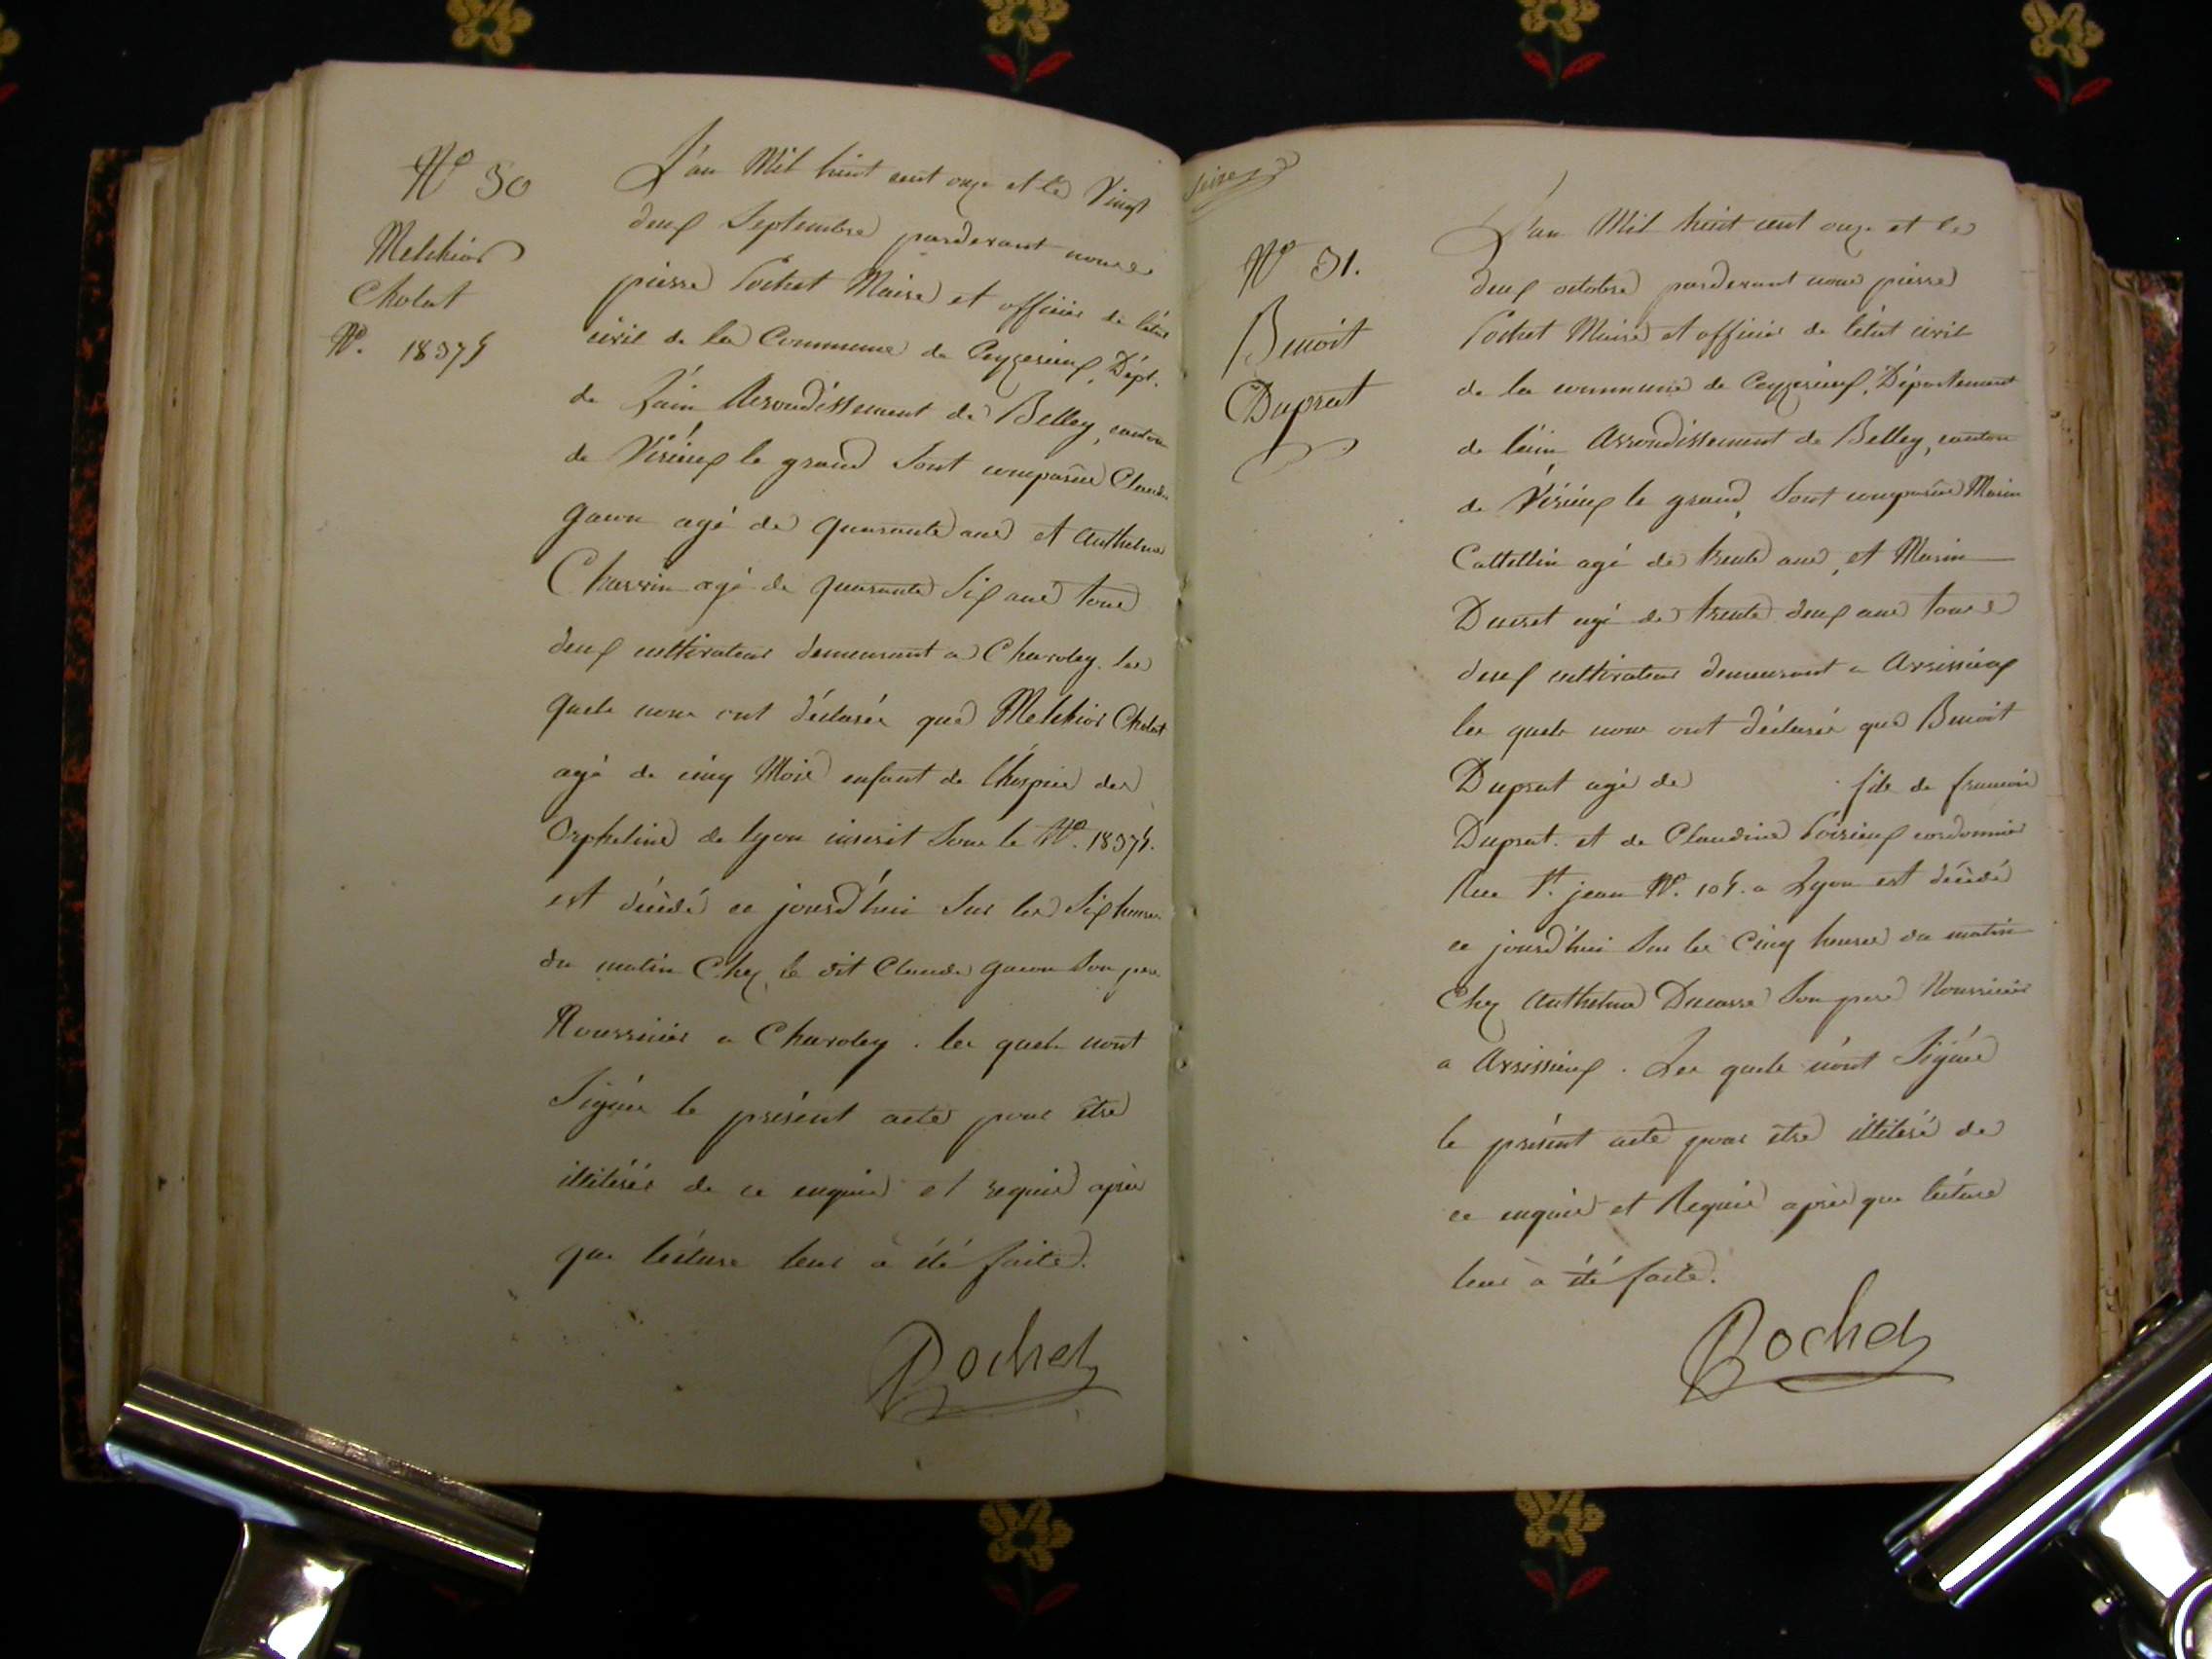 N.º 30
Melchior
Cholat
N.º 18374
L'an Mil huit cent onze et le Vingt
deux Septembre pardevant nous
pierre Pochet Maire et officier de l'état
civil de la Commune de Ceyzerieux, Dépt.
de l'ain Arrondissement de Belley, canton
de Virieux le grand Sont comparus Claude
gacon agé de quarante ans et anthelme
Charvin agé de quarante Six ans tous
deux cultivateurs demeurant a Charoley. les
quels nous ont déclarés que Melchior Cholat
agé de cinq Mois enfant de l'hospice des
Orphelins de lyon inscrit Sous le Nº. 18374.
est décédé ce jourd'hui Sur les Six heures
du matin Chez le dit Claude gacon Son pere
Nourricier a Charoley. les quels n'ont
Signés le présent acte pour être
illitérés de ce enquis et requis après
que lecture leur a été faite.
Pochet
Seize
Nº 31.
Benoit
Duprat
L'an Mil huit cent onze et le
deux octobre pardevant nous pierre
Pochet Maire et officier de l'état civil
de la commune de Ceyzerieux, Département
de l'ain Arrondissement de Belley, canton
de Virieux le grand, Sont comparus Marin
Cattellin agé de trente ans, et Marin
Ducret agé de trente deux ans tous
deux cultivateurs demeurant a Avrissieux
les quels nous ont déclarés que Benoit
Duprat agé de fils de francois
Duprat et de Claudine Poirieux cordonnier
Rue St. jean Nº. 104. a Lyon est décédé
ce jourd'hui Sur les Cinq heures du matin
Chez Anthelme Ducarre Son pere Nourricier
a Avrissieux. Les quels n'ont Signés
le présent acte pour être illitéré de
ce enquis et Requis après que lecture
leur a été faite.
Pochet